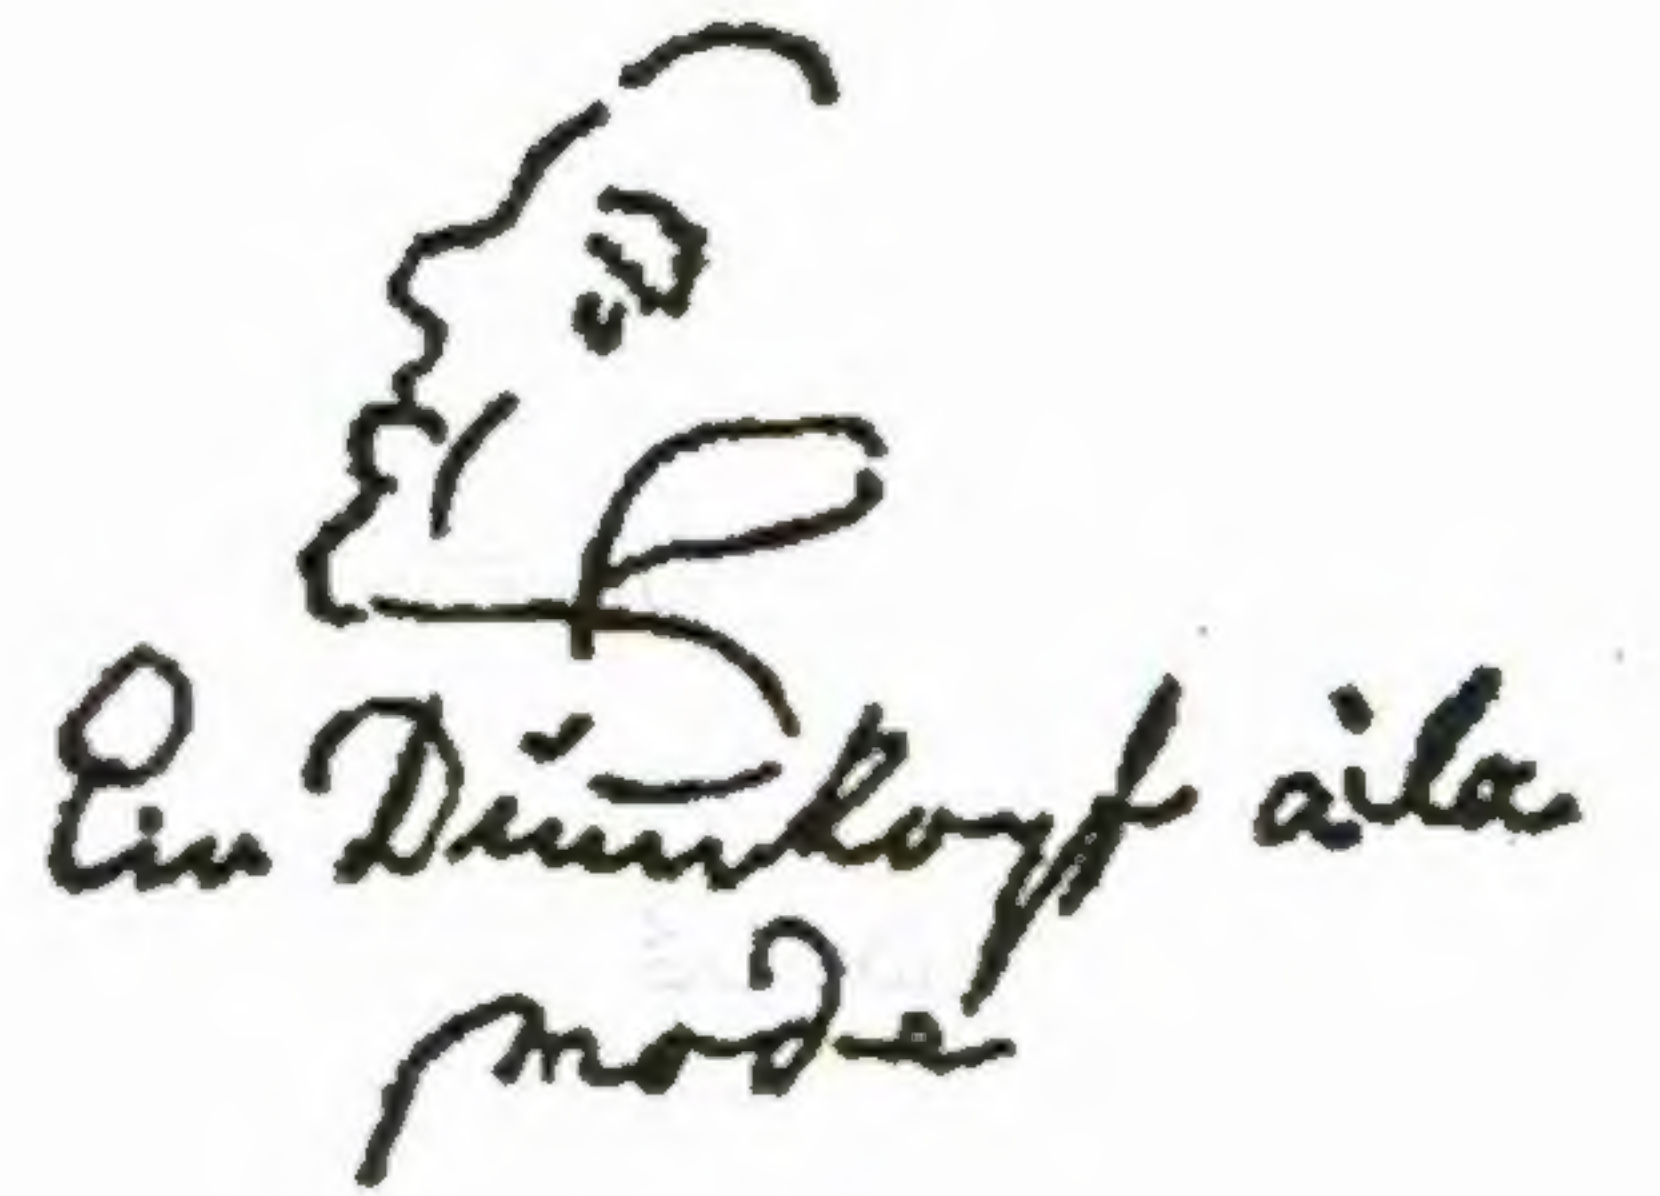 Ein Dumkopf àla
mode